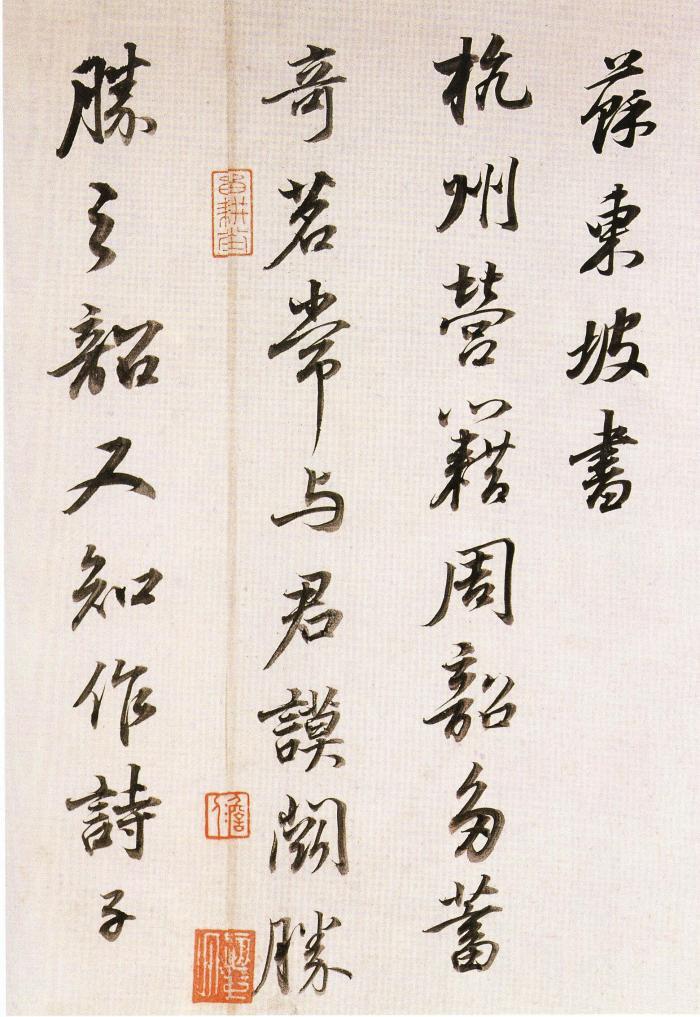 蘇東坡書
杭州營籍周韶多蓄
奇茗常与君謨鬪勝
勝之韶又知作詩子
留耕堂